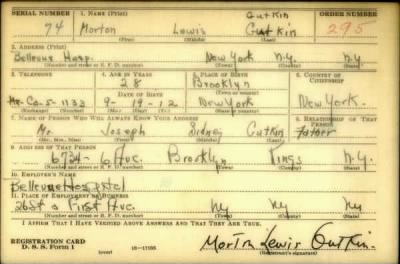 SERIAL NUMBER 1. NAME (Print) ORDER NUMBER
Gutkin
74 Morton Lewis Gutkin 295
(First) (Middle) (Last)
2. ADDRESS (Print)
Bellevue Hosp. New York N.Y. NY
(Number and street or R. F. D. number) (Town) (County) (State)
3. TELEPHONE 4. AGE IN YEARS 5. PLACE OF BIRTH 6. COUNTRY OF CITIZENSHIP
28 Brooklyn
DATE OF BIRTH (Town or county)
Co-5-1133 9-19-12 New York New York.
(Mo.) (Day) (Yr.) (State or country)
7. NAME OF PERSON WHO WILL ALWAYS KNOW YOUR ADDRESS 8. RELATIONSHIP OF THAT PERSON
Mr. Joseph Sidney Gutkin Father
(Mr., Mrs., Miss) (First) (Middle) (Last)
9. ADDRESS OF THAT PERSON
6734-6 Ave. Brooklyn Kings N.Y.
(Number and street or R. F. D. number) (Town) (County) (State)
10. EMPLOYER'S NAME
Bellevue Hospital
11. PLACE OF EMPLOYMENT OR BUSINESS
26 St & First Ave. NY NY NY
(Number and street or R. F. D. number) (Town) (County) (State)
I AFFIRM THAT I HAVE VERIFIED ABOVE ANSWERS AND THAT THEY ARE TRUE.
REGISTRATION CARD
D. S. S. Form 1 (over) 16-17105 Morton Lewis Gutkin.
(Registrant's signature)